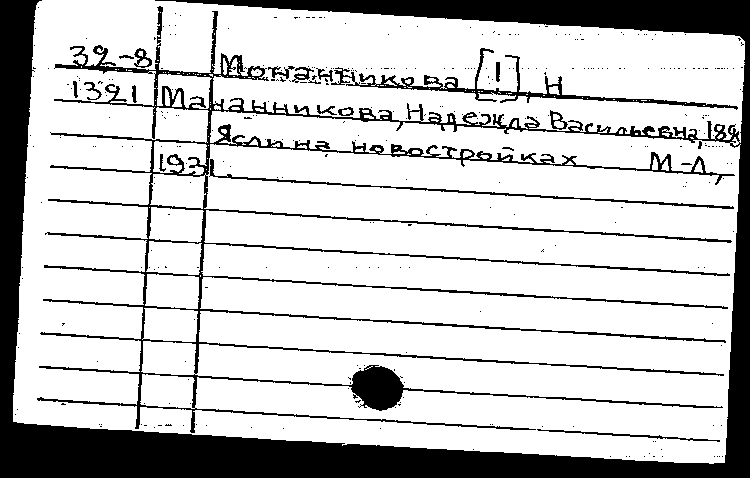 32-8 Монанникова [!], Н
1321 Мананникова, Надежда Васильевна, 188
Ясли на новостройках М-Л.,
1931.